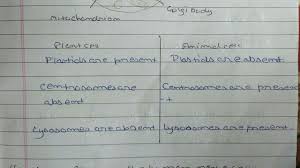 Golgi body
Mitochondrion
Plant cell Animal cell
Plastids are present Plastids are absent.
Centrosomes are Centrosomes are present
absent
Lysosomes are absent Lysosomes are present.